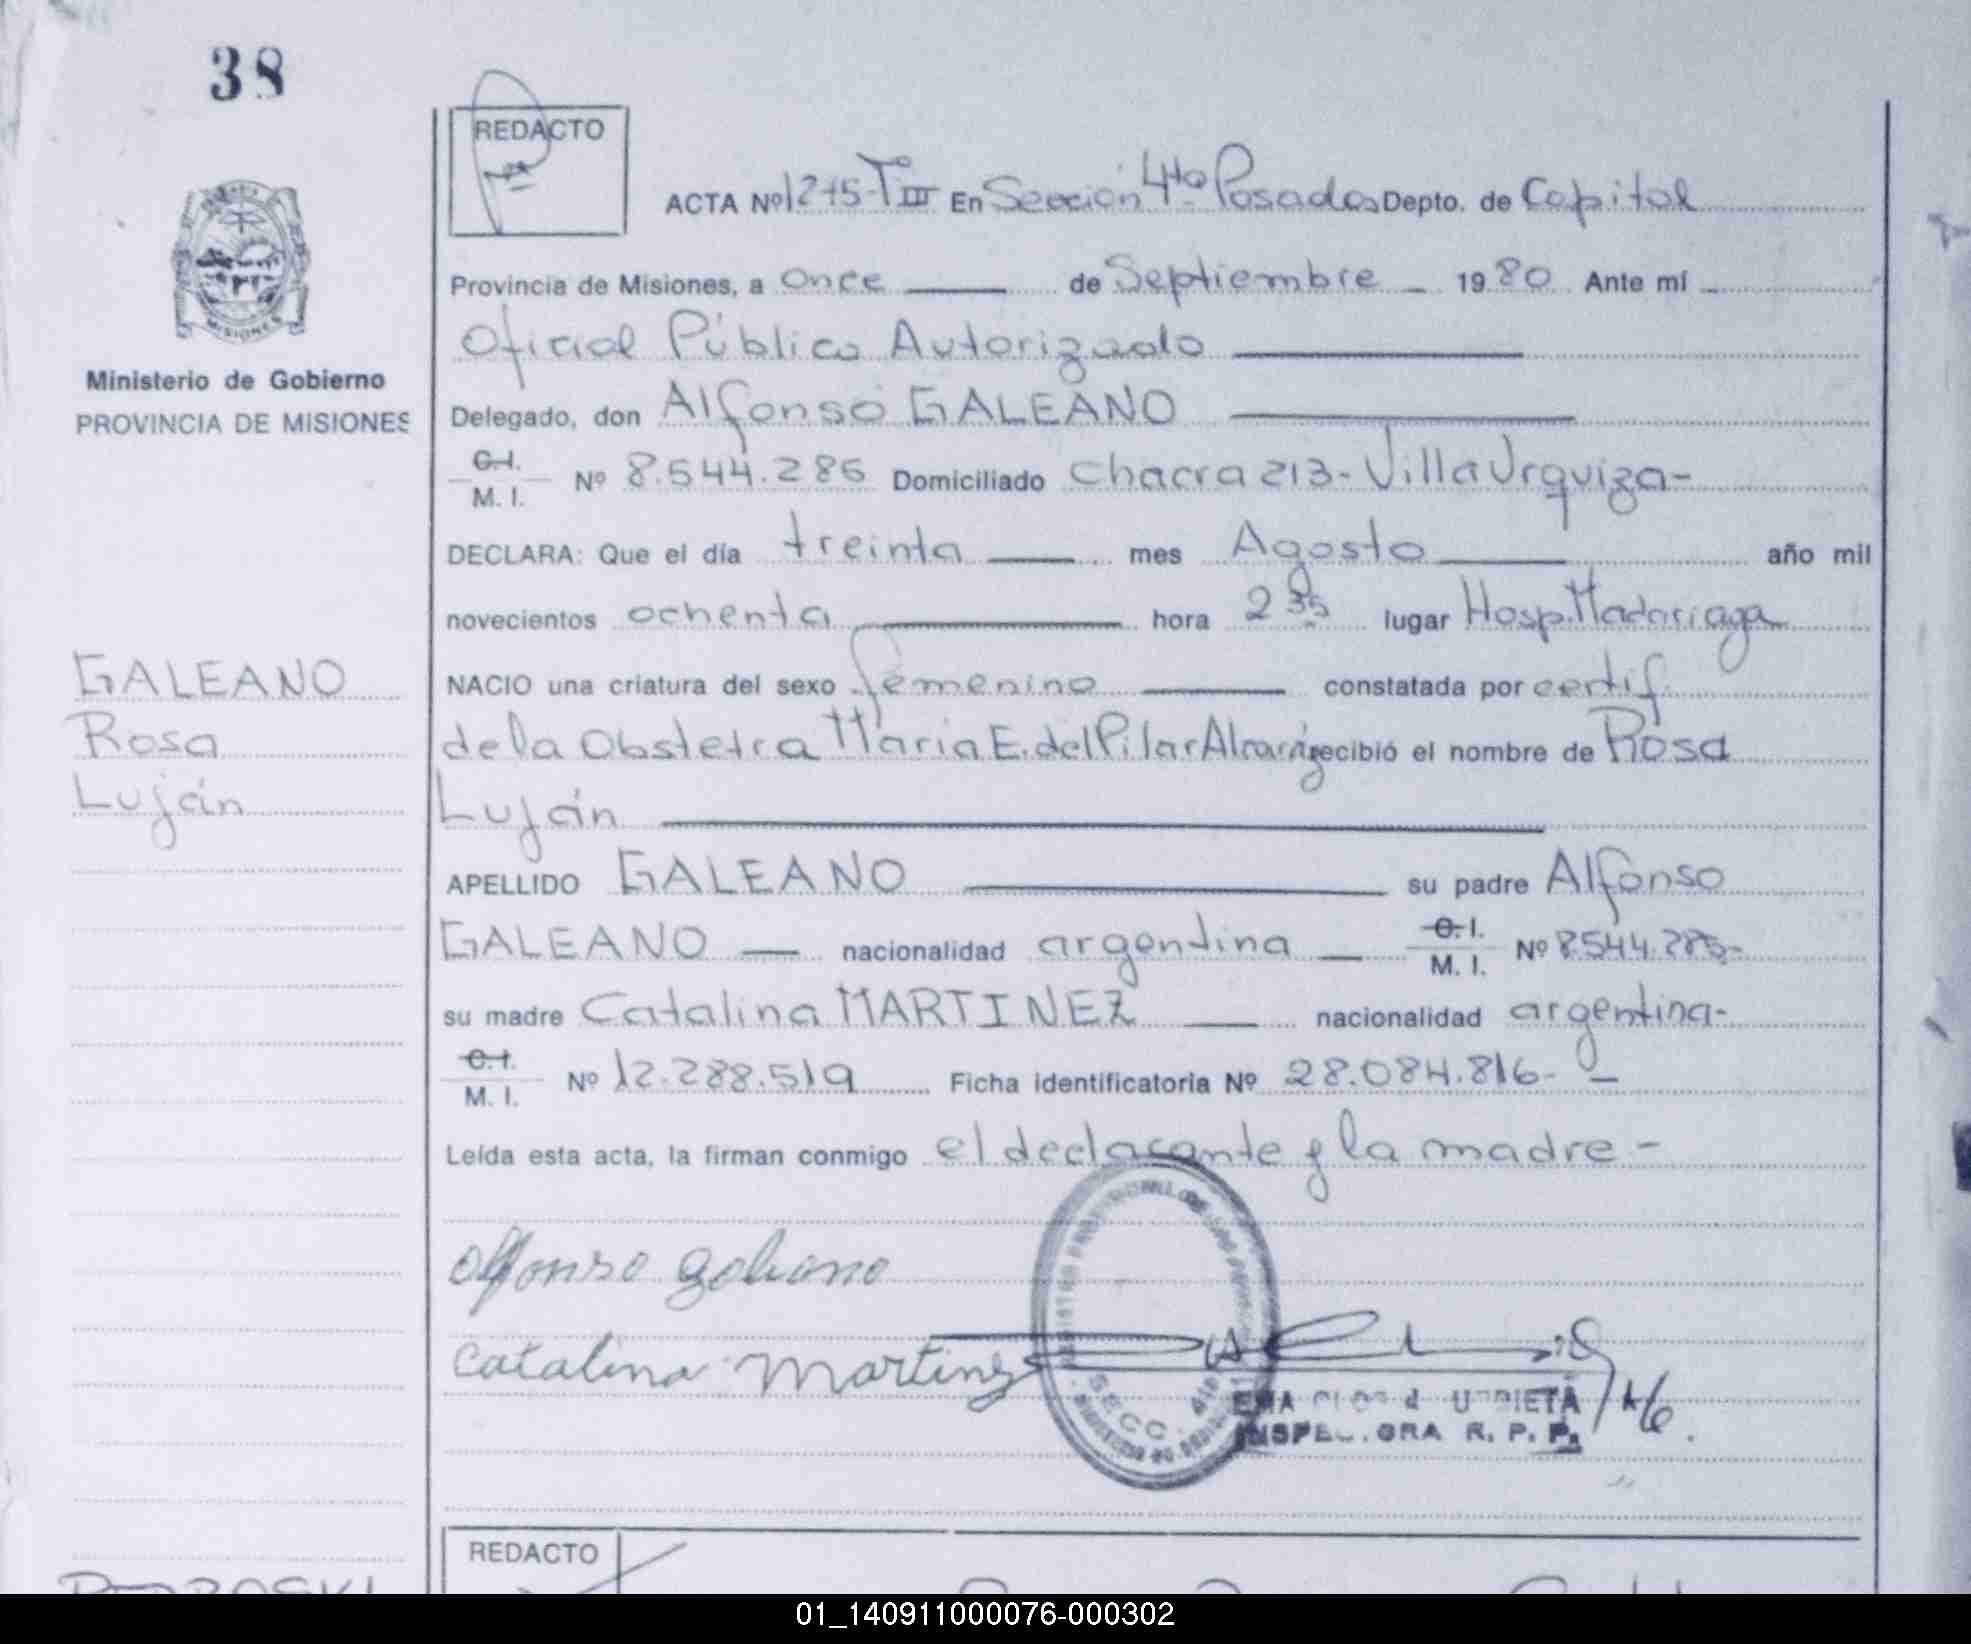 38
REDACTO
ACTA Nº 1215-Tº III En Sección 4ta Posadas Depto. de Capital
Provincia de Misiones, a once de Septiembre 1980 Ante mí
Oficial Público Autorizado
Ministerio de Gobierno
PROVINCIA DE MISIONES
Delegado, don Alfonso GALEANO
C.I. M.I. Nº 8.544.285 Domiciliado chacra 213-Villa Urquiza-
DECLARA: Que el día treinta mes Agosto año mil
novecientos ochenta hora 2 35 lugar Hosp. Madariaga
NACIO una criatura del sexo femenino constatada por certif.
de la Obstetra María E. del Pilar Alcaráz recibió el nombre de Rosa
Luján
GALEANO
Rosa
Luján
APELLIDO GALEANO su padre Alfonso
GALEANO nacionalidad argentina C.I. M.I. Nº 8.544.285-
su madre Catalina MARTINEZ nacionalidad argentina-
C.I. M.I. Nº 12.288.519 Ficha identificatoria Nº 28.084.816-
Leída esta acta, la firman conmigo el declarante y la madre-
alfonso galeano
catalina martinez
MISIONES
SECC. 4ta
URRIETA
INSPECTORA R. P. P.
REDACTO
01_140911000076-000302